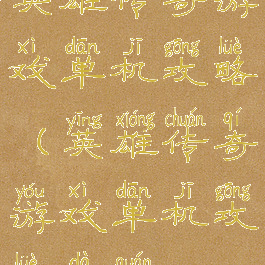 英雄传奇游
xì dān jī gōng lüè
戏单机攻略
yīng xióng chuán qí
(英雄传奇
yóu xì dān jī gōng
游戏单机攻
lüè dà quán